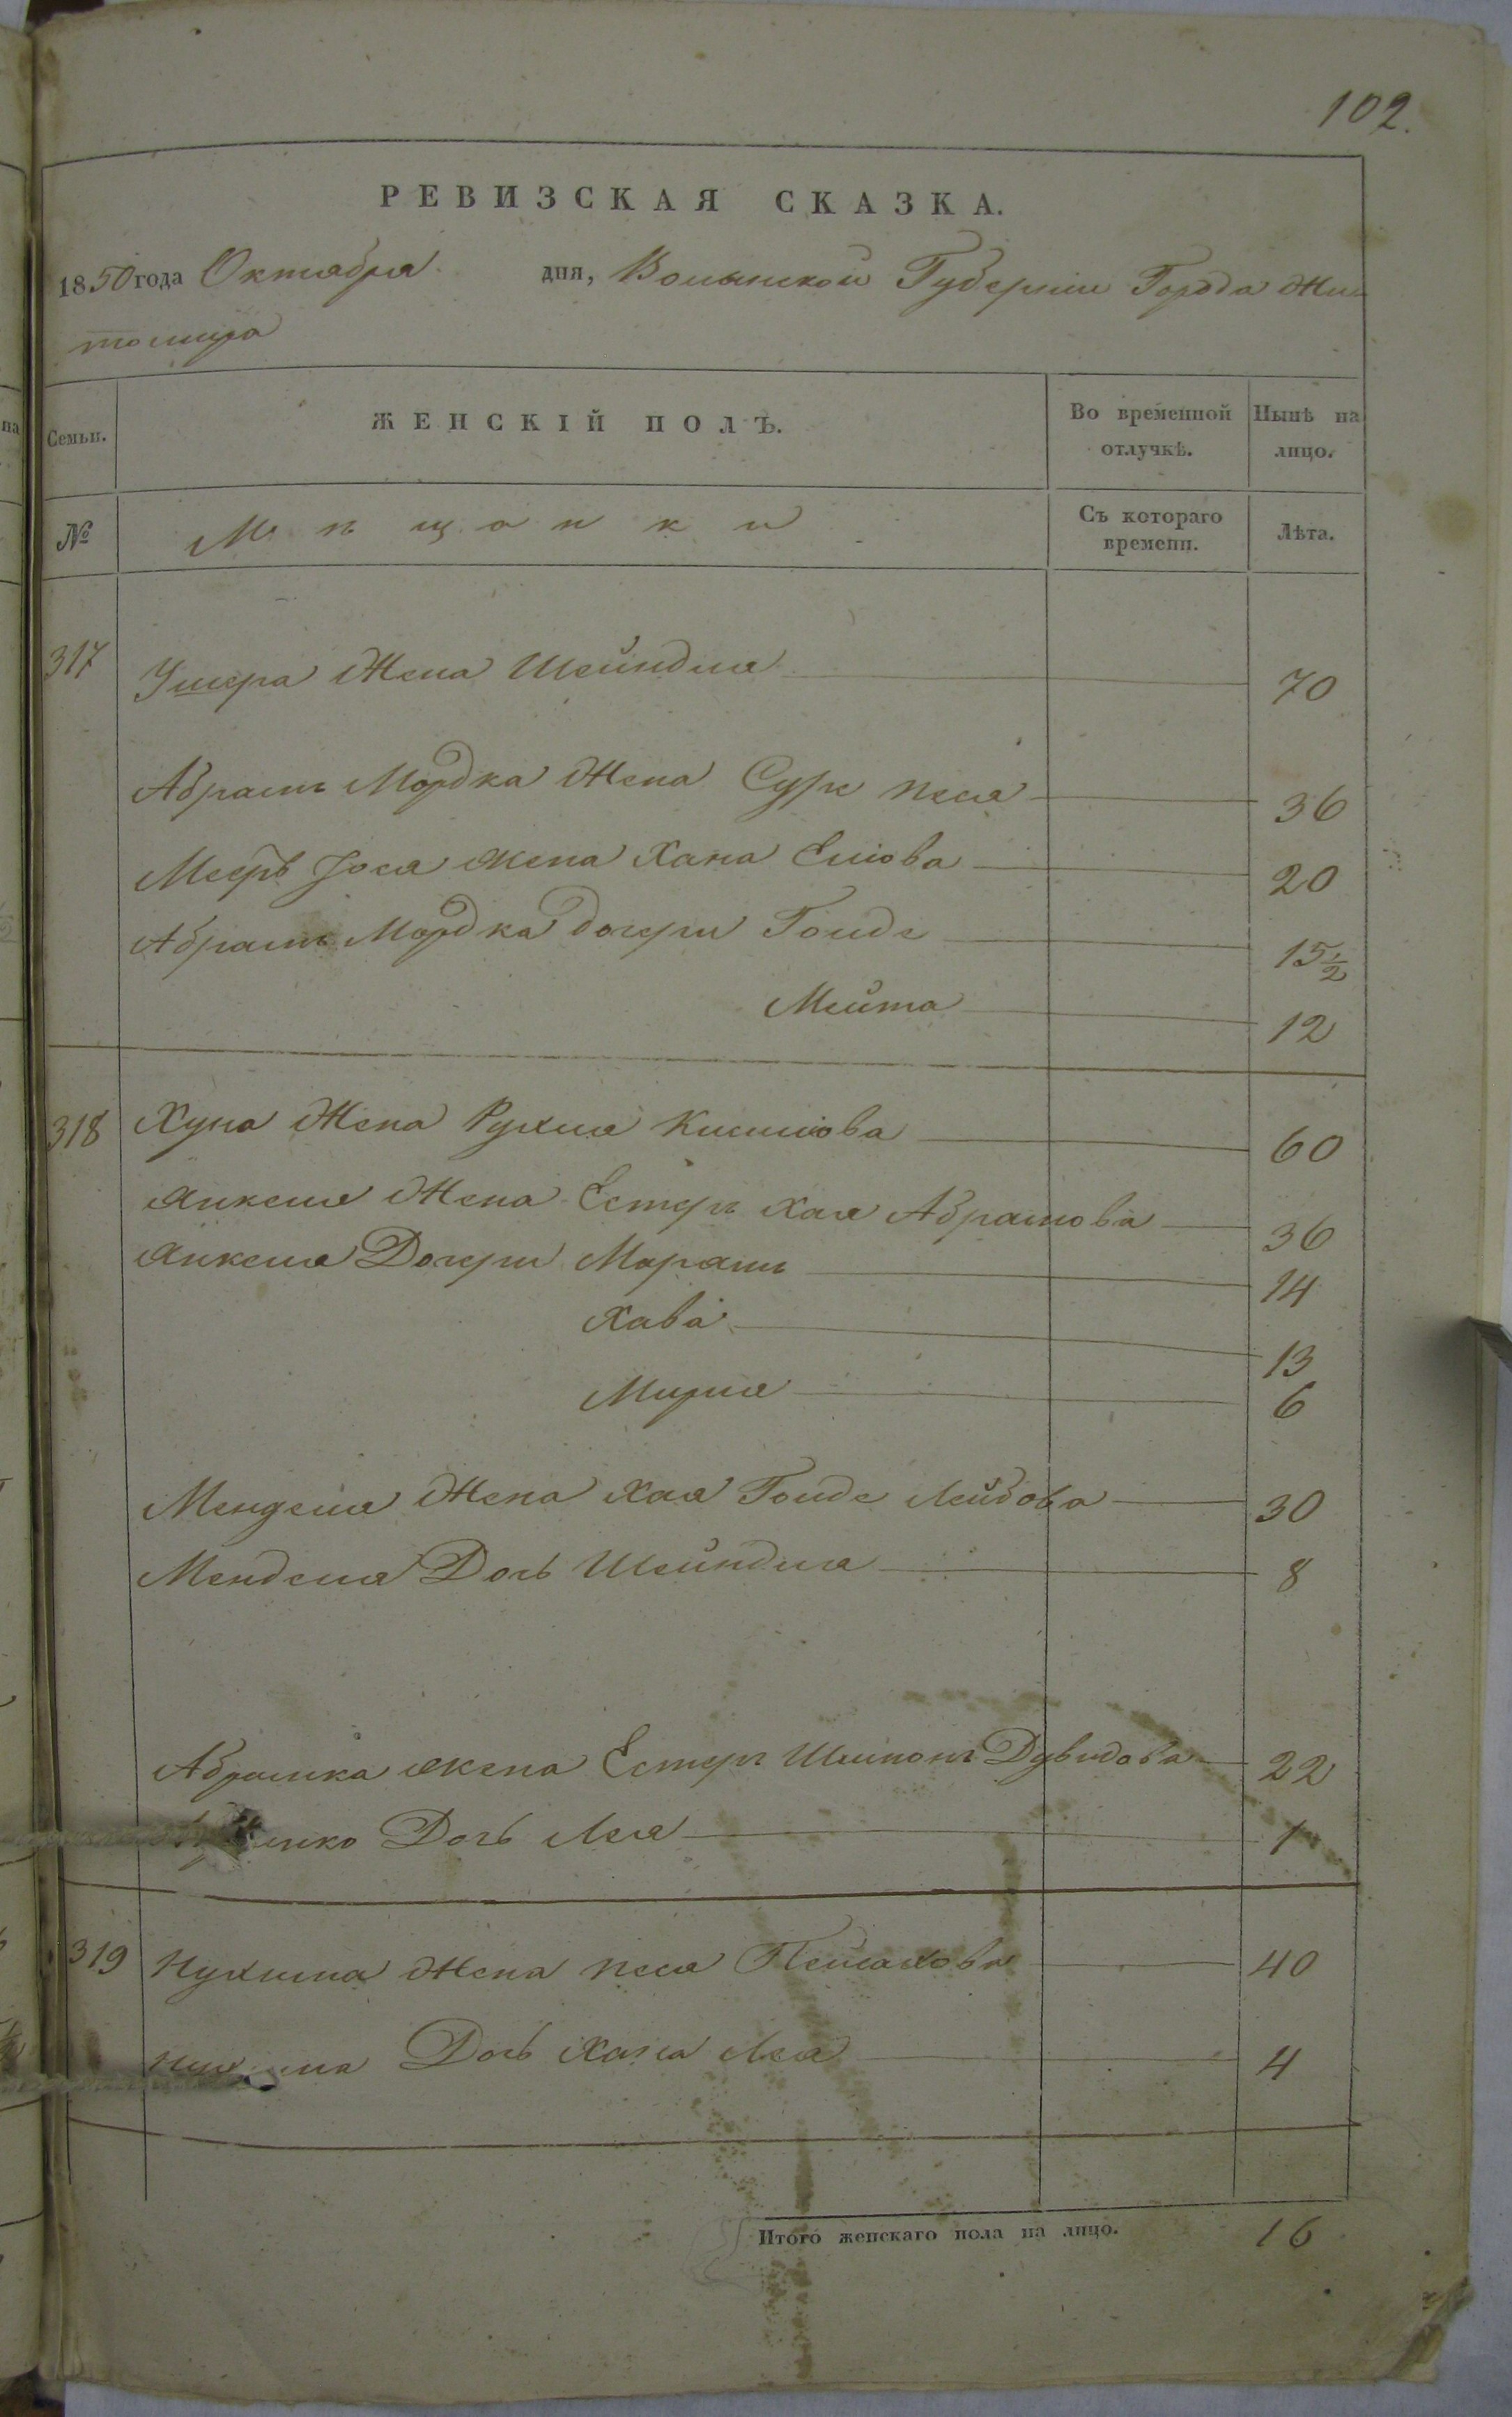 102.
РЕВИЗСКАЯ СКАЗКА.
1850 года Октября дня, Волынской Губернии Города Жи
томира
Семьи. ЖЕНСКІЙ ПОЛЪ. Во временной отлучкѣ. Нынѣ на лицо.
№ Мѣщанки Съ котораго времени. Лѣта.
317 Ушера Жена Шейндля 70
Абрамъ Мордка Жена Суре Песя 36
Мееръ Іося жена Хана Еліова 20
Абрамъ Мордка дочери Голде 15½
Мейта 12
318 Хуна Жена Рухля Кисилиова 60
Янкеля Жена Естеръ Хая Абрамова 36
Янкеля Дочери Марямъ 14
Хава 13
Мирля 6
Менделя Жена Хая Голде Лейбова 30
Менделя Дочь Шейндля 8
Абрамка жена Естеръ Шлиома Дувидова 22
Дочь Лея 1
319 Нухима Жена Песя Пейсахова 40
Дочь Хана Лея 4
Итого женскаго пола на лицо. 16